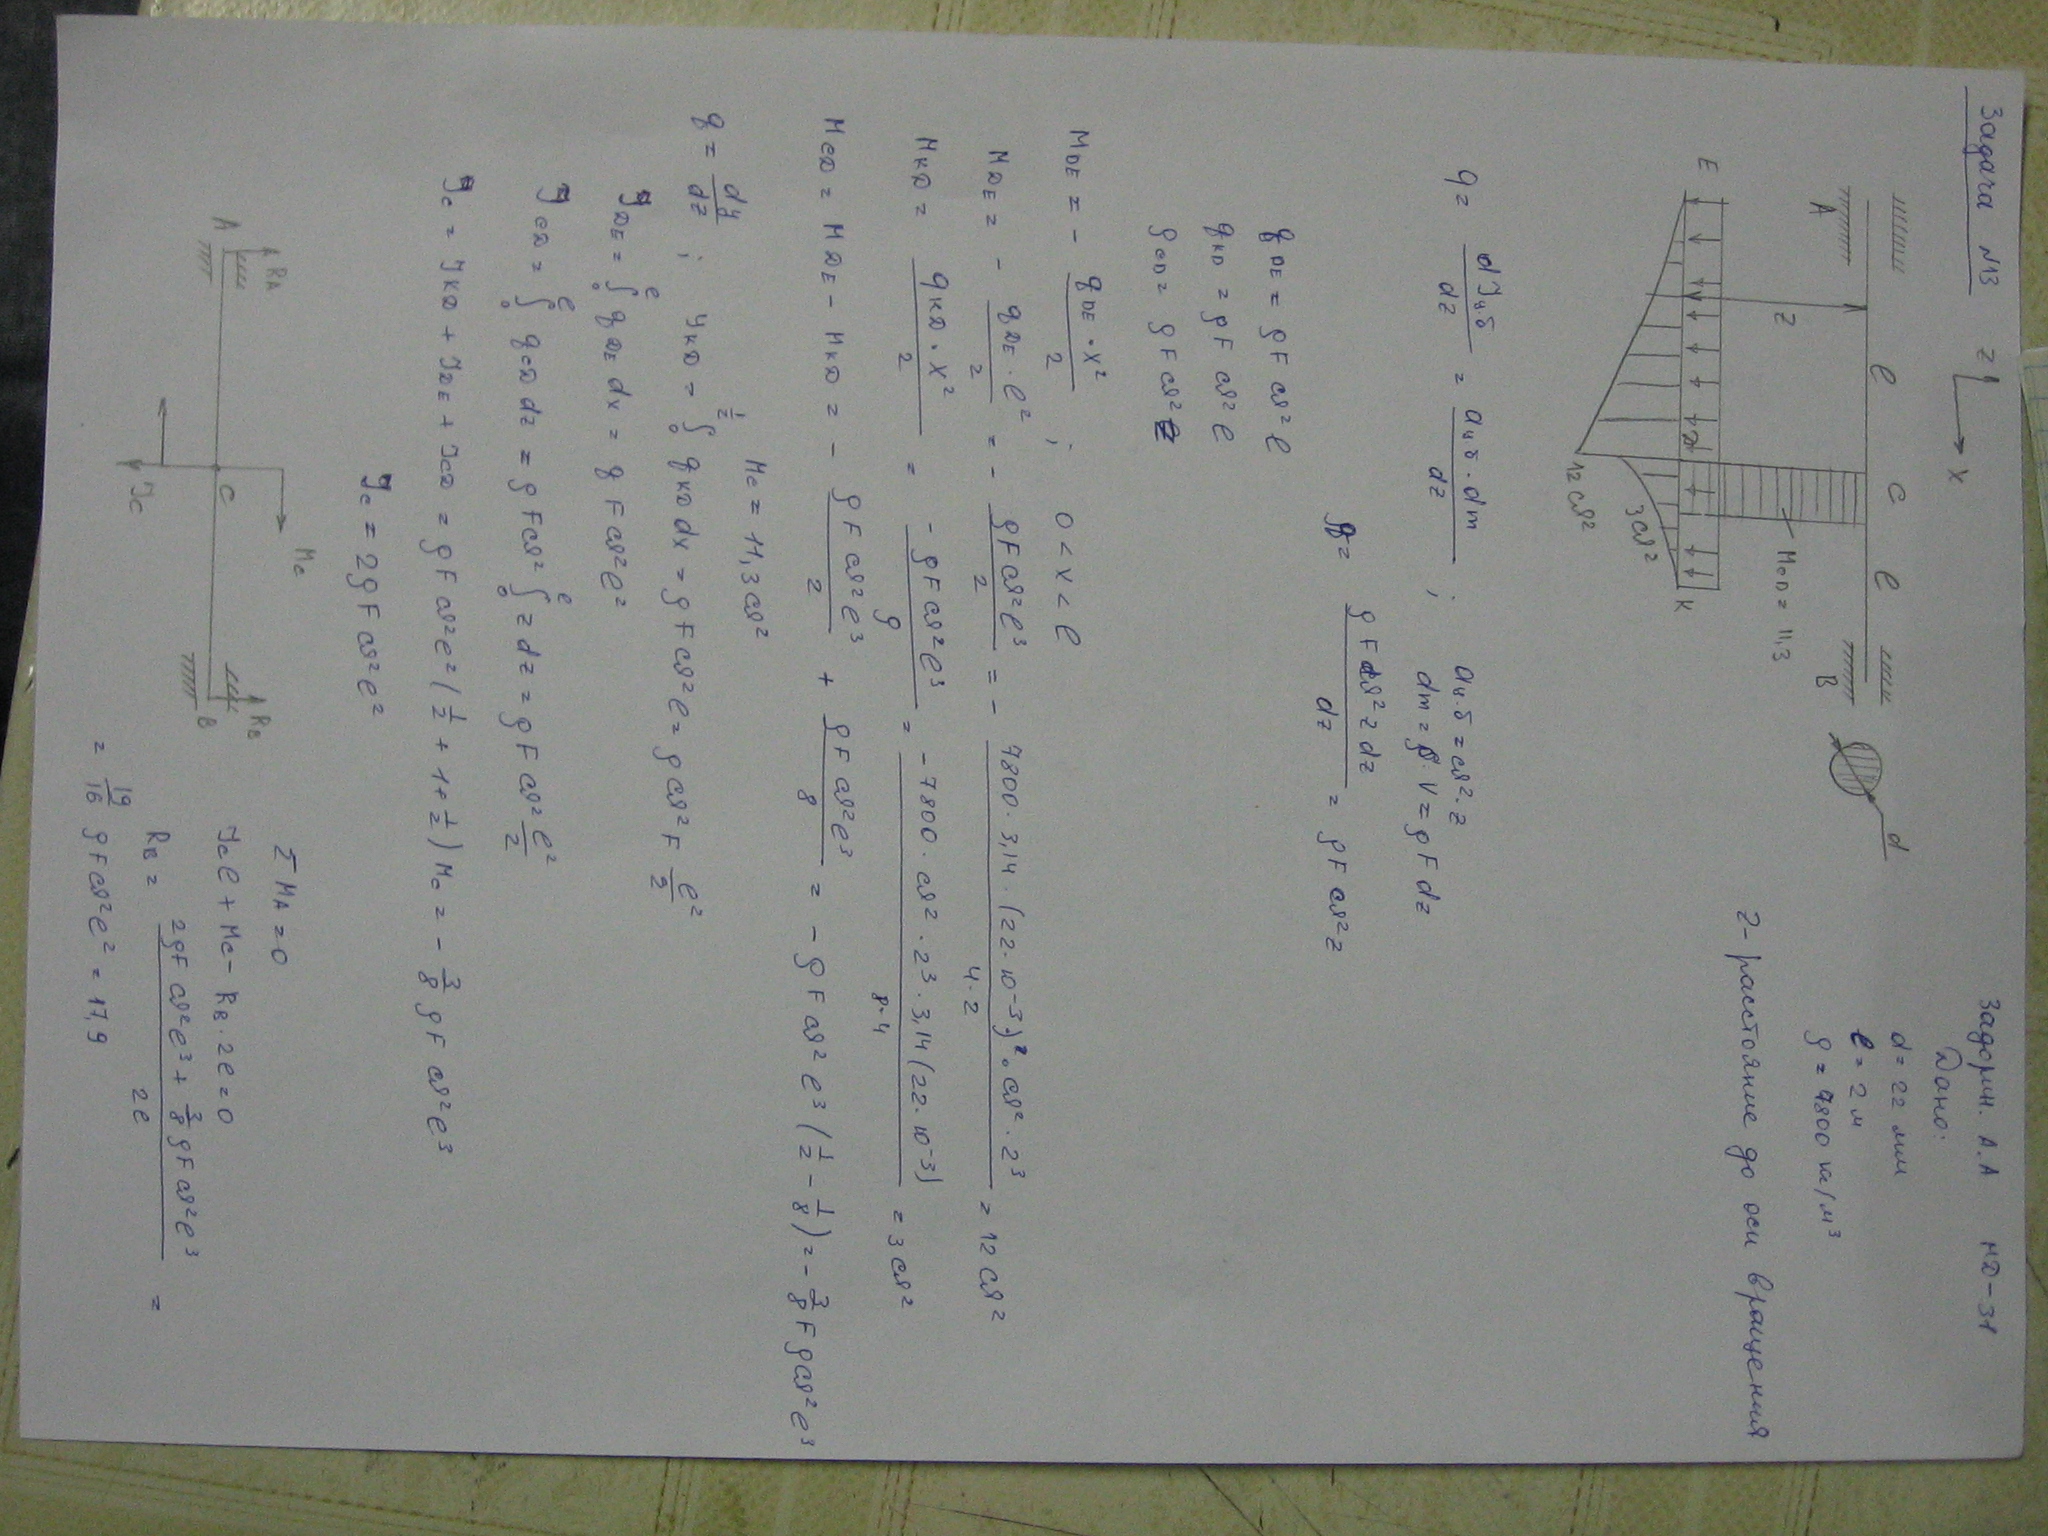 Задача №13
Задорин. А.А НД-31
Дано:
d = 22 мм
ℓ = 2 м
ρ = 7800 кг/м³
z x
A ℓ c ℓ B d
z
E D K
M_CD = 11,3
3ω²
12ω²
z - расстояние до оси вращения
q = dJ_и.б / dz = a_и.б · dm / dz ; a_и.б = ω² · z
dm = ρ · V = ρ F dz
q = ρ F ω² z dz / dz = ρ F ω² z
q_DE = ρ F ω² ℓ
q_KD = ρ F ω² ℓ
q_CD = ρ F ω² z
M_DE = - q_DE · x² / 2 ; 0 < x < ℓ
M_DE = - q_DE · ℓ² / 2 = - ρ F ω² ℓ³ / 2 = - 7800 · 3,14 · (22 · 10⁻³)² · ω² · 2³ / 4 · 2 = 12 ω²
M_KD = q_KD · x² / 2 = - ρ F ω² ℓ³ / 8 = - 7800 · ω² · 2³ · 3,14 (22 · 10⁻³) / 8 · 4 = 3 ω²
M_CD = M_DE - M_KD = - ρ F ω² ℓ³ / 2 + ρ F ω² ℓ³ / 8 = - ρ F ω² ℓ³ (1/2 - 1/8) = - 3/8 F ρ ω² ℓ³
M_C = 11,3 ω²
q = dy / dz ; J_KD = ∫₀^(ℓ/2) q_KD dx = ρ F ω² ℓ = ρ ω² F ℓ² / 2
J_DE = ∫₀^ℓ q_DE dx = q F ω² ℓ²
J_CD = ∫₀^ℓ q_CD dz = ρ F ω² ∫₀^ℓ z dz = ρ F ω² ℓ² / 2
J_C = J_KD + J_DE + J_CD = ρ F ω² ℓ² (1/2 + 1 + 1/2) M_C = - 3/8 ρ F ω² ℓ³
J_C = 2 ρ F ω² ℓ²
A R_A C M_C J_C B R_B
Σ M_A = 0
J_C ℓ + M_C - R_B · 2ℓ = 0
R_B = 2 ρ F ω² ℓ³ + 3/8 ρ F ω² ℓ³ / 2ℓ =
= 19/16 ρ F ω² ℓ² = 17,9